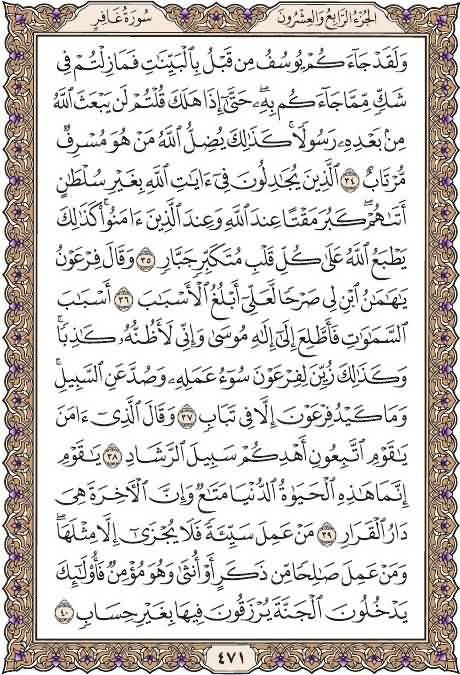 الجزء الرابع والعشرون سورة غافر
وَلَقَدْ جَآءَكُمْ يُوسُفُ مِن قَبْلُ بِٱلْبَيِّنَٰتِ فَمَازِلْتُمْ فِى
شَكٍّ مِّمَّا جَآءَكُم بِهِۦ ۖ حَتَّىٰٓ إِذَا هَلَكَ قُلْتُمْ لَن يَبْعَثَ ٱللَّهُ
مِنۢ بَعْدِهِۦ رَسُولًا ۚ كَذَٰلِكَ يُضِلُّ ٱللَّهُ مَنْ هُوَ مُسْرِفٌ
مُّرْتَابٌ ٣٤ ٱلَّذِينَ يُجَٰدِلُونَ فِىٓ ءَايَٰتِ ٱللَّهِ بِغَيْرِ سُلْطَٰنٍ
أَتَىٰهُمْ ۖ كَبُرَ مَقْتًا عِندَ ٱللَّهِ وَعِندَ ٱلَّذِينَ ءَامَنُوا۟ ۚ كَذَٰلِكَ
يَطْبَعُ ٱللَّهُ عَلَىٰ كُلِّ قَلْبِ مُتَكَبِّرٍ جَبَّارٍ ٣٥ وَقَالَ فِرْعَوْنُ
يَٰهَٰمَٰنُ ٱبْنِ لِى صَرْحًا لَّعَلِّىٓ أَبْلُغُ ٱلْأَسْبَٰبَ ٣٦ أَسْبَٰبَ
ٱلسَّمَٰوَٰتِ فَأَطَّلِعَ إِلَىٰٓ إِلَٰهِ مُوسَىٰ وَإِنِّى لَأَظُنُّهُۥ كَٰذِبًا ۚ
وَكَذَٰلِكَ زُيِّنَ لِفِرْعَوْنَ سُوٓءُ عَمَلِهِۦ وَصُدَّ عَنِ ٱلسَّبِيلِ ۚ
وَمَا كَيْدُ فِرْعَوْنَ إِلَّا فِى تَبَابٍ ٣٧ وَقَالَ ٱلَّذِىٓ ءَامَنَ
يَٰقَوْمِ ٱتَّبِعُونِ أَهْدِكُمْ سَبِيلَ ٱلرَّشَادِ ٣٨ يَٰقَوْمِ
إِنَّمَا هَٰذِهِ ٱلْحَيَوٰةُ ٱلدُّنْيَا مَتَٰعٌ وَإِنَّ ٱلْءَاخِرَةَ هِىَ
دَارُ ٱلْقَرَارِ ٣٩ مَنْ عَمِلَ سَيِّئَةً فَلَا يُجْزَىٰٓ إِلَّا مِثْلَهَا ۖ
وَمَنْ عَمِلَ صَٰلِحًا مِّن ذَكَرٍ أَوْ أُنثَىٰ وَهُوَ مُؤْمِنٌ فَأُو۟لَٰٓئِكَ
يَدْخُلُونَ ٱلْجَنَّةَ يُرْزَقُونَ فِيهَا بِغَيْرِ حِسَابٍ ٤٠
٤٧١